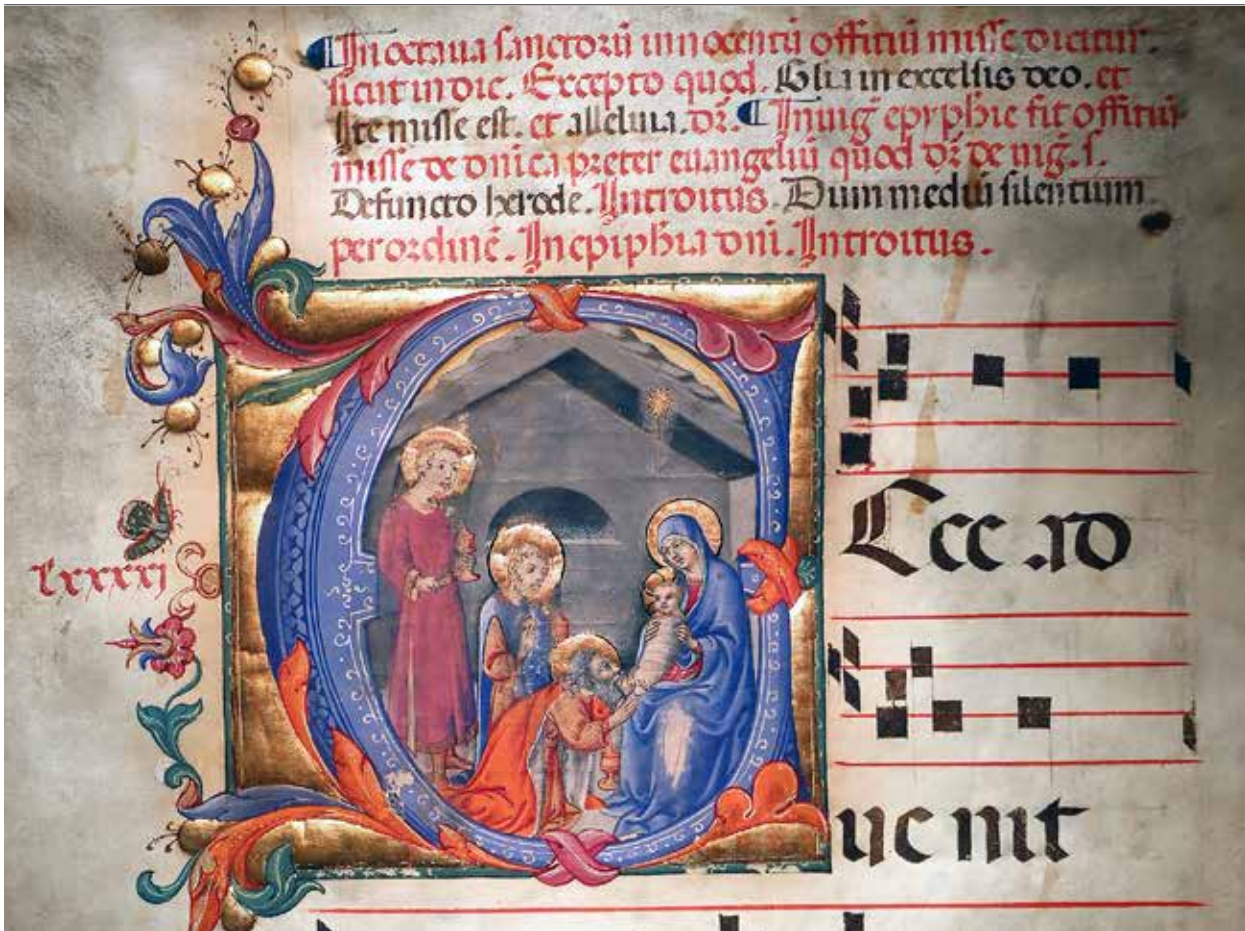 In octaua sanctorũ innocentũ offitiũ misse dicitur.
sicut in die. Excepto quod. Glia in excelsis deo. et
Ite misse est. et alleluia. dr̃. In uig̃ epyphie fit offitiũ
misse de dñica preter euangeliũ quod dr̃ de uig̃. s.
Defuncto herode. Introitus. Dum mediũ silentium
per ordinẽ. In epiphia dñi. Introitus.
Ecce. ad
lxxxxj
ue nit